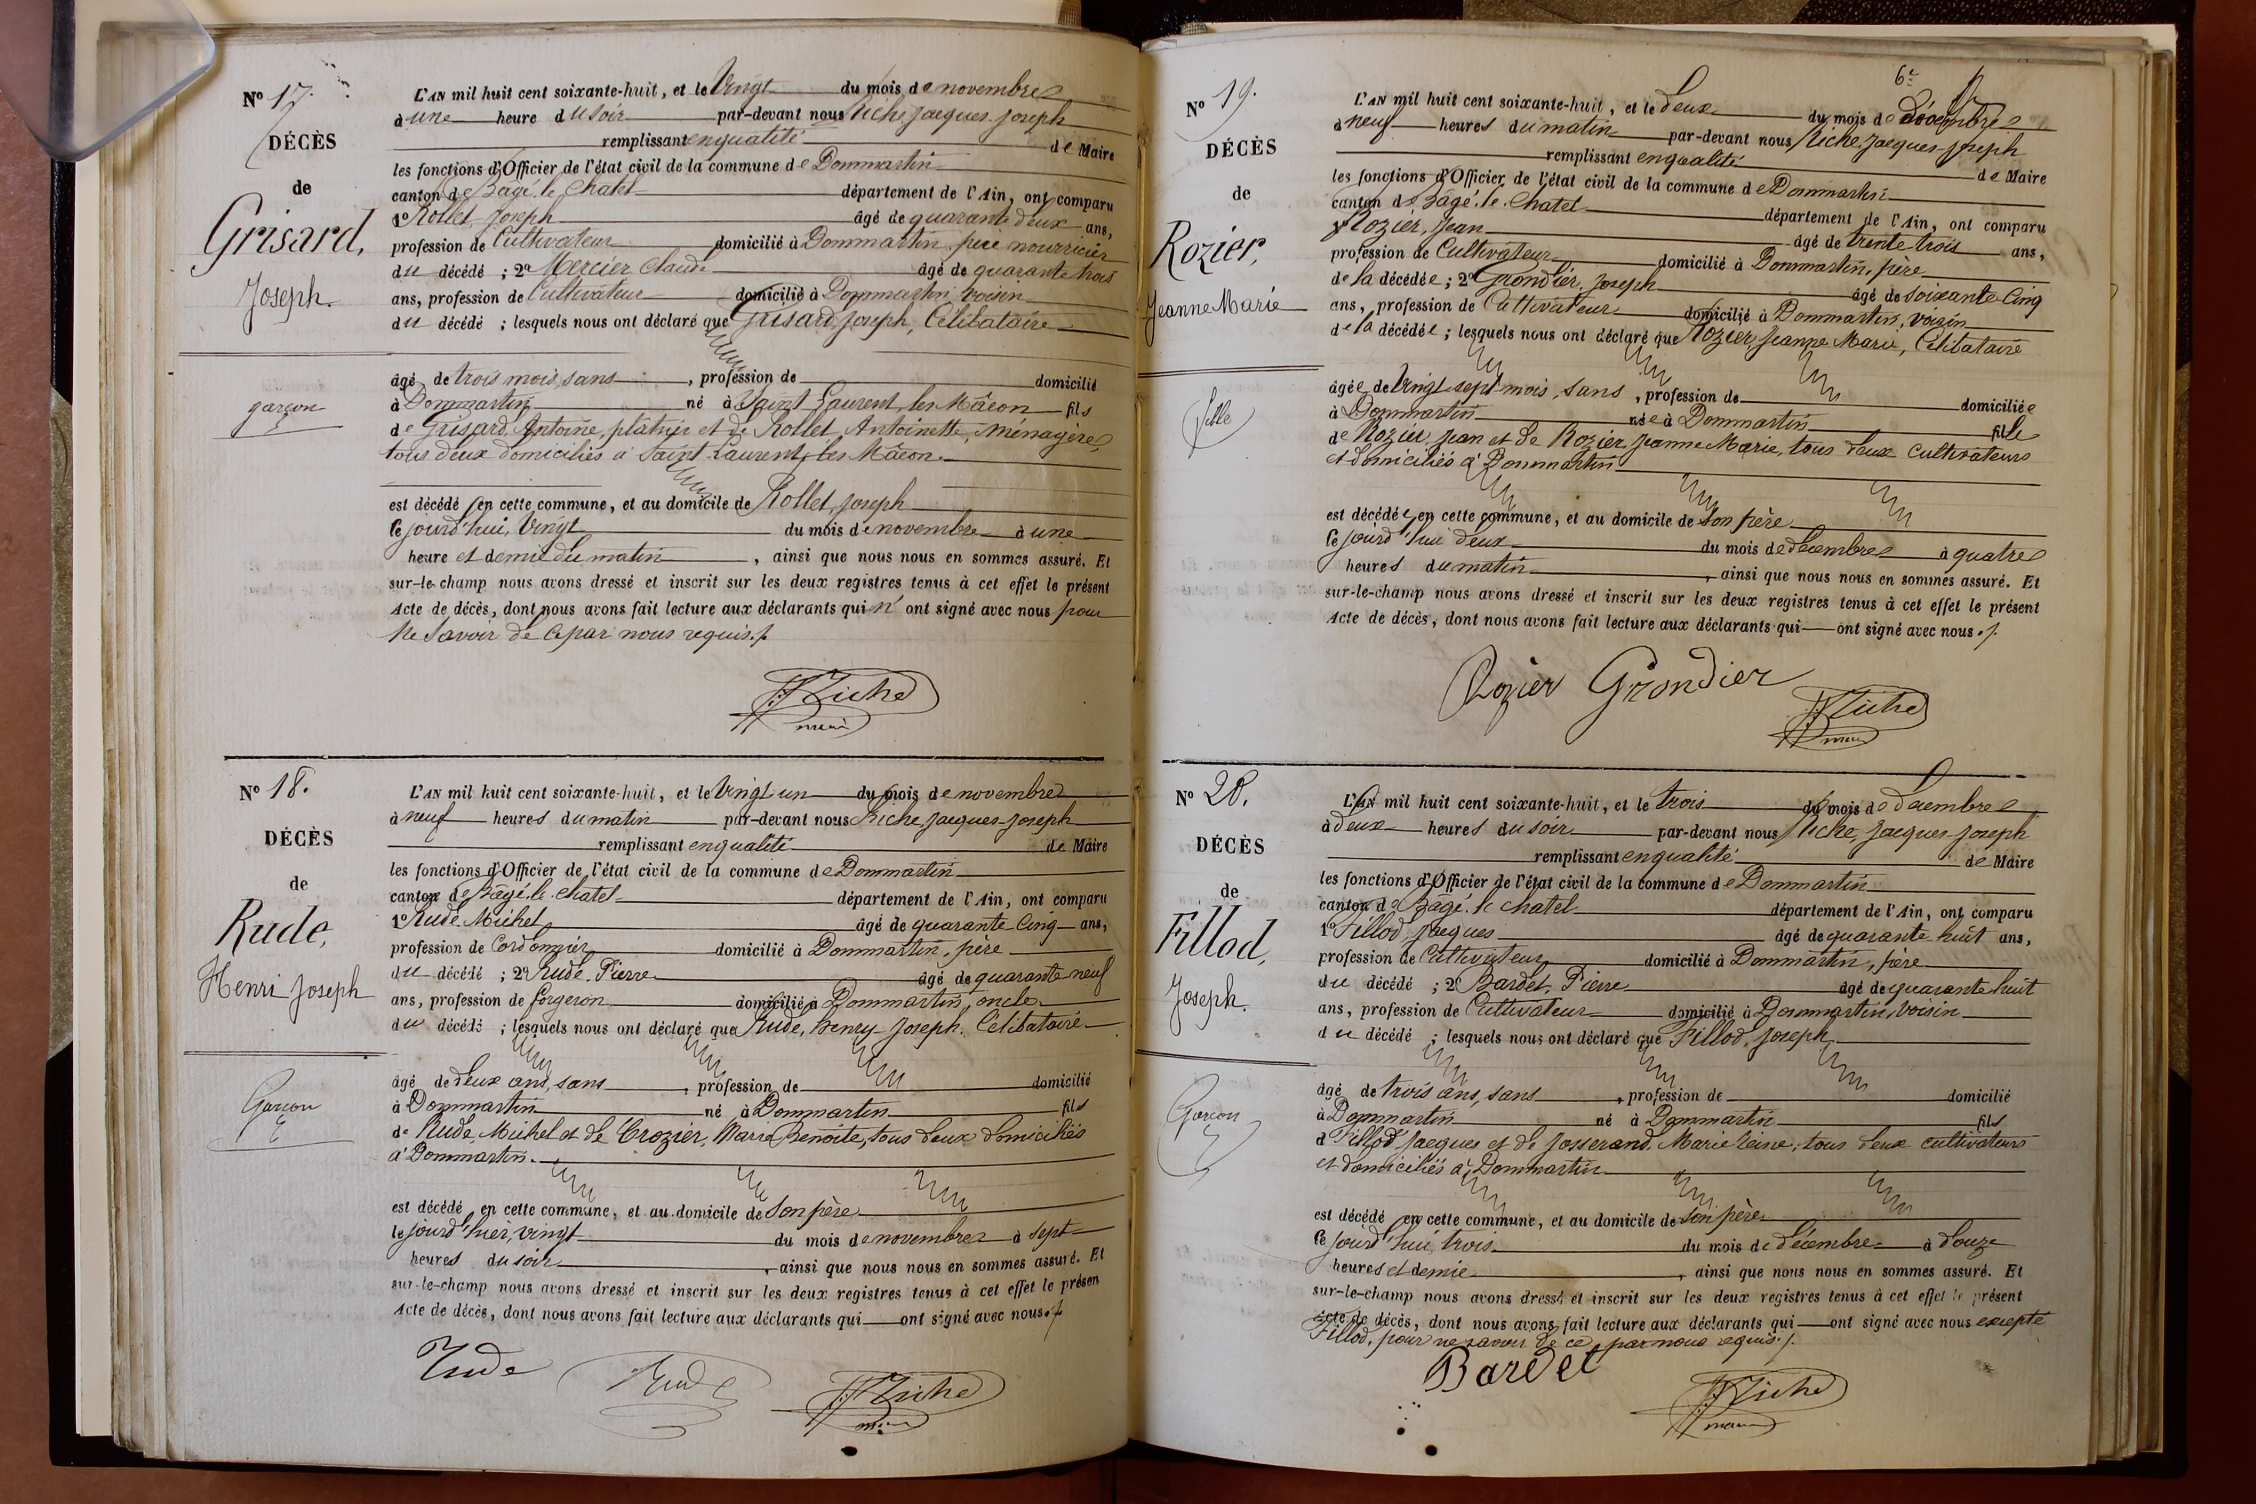 Nº 17.
DÉCÈS
de
Grisard,
Joseph.
garçon
L'AN mil huit cent soixante-huit, et le Vingt du mois de novembre
à une heure du soir par-devant nous Riche, Jacques-Joseph
remplissant en qualité de Maire
les fonctions d'Officier de l'état civil de la commune de Dommartin
canton de Bâgé-le-Chatel département de l'Ain, ont comparu
1º Rollet, Joseph âgé de quarante deux ans,
profession de Cultivateur domicilié à Dommartin, père nourricier
du décédé ; 2º Mercier Claude âgé de quarante trois
ans, profession de Cultivateur domicilié à Dommartin, voisin
du décédé ; lesquels nous ont déclaré que Grisard, Joseph, Célibataire
âgé de trois mois, sans , profession de domicilié
à Dommartin né à Saint Laurent-les-Mâcon fils
de Grisard, Antoine, plâtrier et de Rollet, Antoinette, ménagère,
tous deux domiciliés à Saint-Laurent-les-Mâcon.
est décédé en cette commune, et au domicile de Rollet, Joseph
le jourd'hui, Vingt du mois de novembre à une
heure et demie du matin , ainsi que nous nous en sommes assuré. Et
sur-le-champ nous avons dressé et inscrit sur les deux registres tenus à cet effet le présent
Acte de décès, dont nous avons fait lecture aux déclarants qui n' ont signé avec nous pour
ne savoir de ce par nous requis./.
J.J. Riche
maire
Nº 18.
DÉCÈS
de
Rude,
Henri Joseph
Garçon
L'AN mil huit cent soixante-huit, et le Vingt un du mois de novembre
à neuf heures du matin par-devant nous Riche, Jacques-Joseph
remplissant en qualité de Maire
les fonctions d'Officier de l'état civil de la commune de Dommartin
canton de Bâgé-le-Chatel département de l'Ain, ont comparu
1º Rude, Michel âgé de quarante Cinq ans,
profession de Cordonnier domicilié à Dommartin, père
du décédé ; 2º Rude, Pierre âgé de quarante neuf
ans, profession de forgeron domicilié à Dommartin, oncle
du décédé ; lesquels nous ont déclaré que Rude, Henry Joseph, Célibataire
âgé de deux ans, sans , profession de domicilié
à Dommartin né à Dommartin fils
de Rude, Michel et de Crozier, Marie Benoîte, tous deux domiciliés
à Dommartin.
est décédé en cette commune, et au domicile de son père
le jourd'hier, vingt du mois de novembre à sept
heures du soir , ainsi que nous nous en sommes assuré. Et
sur-le-champ nous avons dressé et inscrit sur les deux registres tenus à cet effet le présen
Acte de décès, dont nous avons fait lecture aux déclarants qui ont signé avec nous./.
Rude Rude J.J. Riche
maire
6e
Nº 19.
DÉCÈS
de
Rozier,
Jeanne Marie
fille
L'AN mil huit cent soixante-huit, et le Deux du mois de Décembre
à neuf heures du matin par-devant nous Riche, Jacques-Joseph
remplissant en qualité de Maire
les fonctions d'Officier de l'état civil de la commune de Dommartin
canton de Bâgé-le-Chatel département de l'Ain, ont comparu
1º Rozier, Jean âgé de trente trois ans,
profession de Cultivateur domicilié à Dommartin, père
de la décédée ; 2º Grondier, Joseph âgé de soixante Cinq
ans, profession de Cultivateur domicilié à Dommartin, voisin
de la décédée ; lesquels nous ont déclaré que Rozier, Jeanne Marie, Célibataire
âgée de Vingt sept mois, sans , profession de domiciliée
à Dommartin née à Dommartin fille
de Rozier, Jean et de Rozier, Jeanne Marie, tous deux cultivateurs
et domiciliés à Dommartin
est décédée en cette commune, et au domicile de son père
le jourd'hui deux du mois de décembre à quatre
heures du matin , ainsi que nous nous en sommes assuré. Et
sur-le-champ nous avons dressé et inscrit sur les deux registres tenus à cet effet le présent
Acte de décès, dont nous avons fait lecture aux déclarants qui ont signé avec nous./.
Rozier Grondier J.J. Riche
maire
Nº 20.
DÉCÈS
de
Fillod,
Joseph.
Garçon
L'AN mil huit cent soixante-huit, et le trois du mois de Décembre
à deux heures du soir par-devant nous Riche, Jacques-Joseph
remplissant en qualité de Maire
les fonctions d'Officier de l'état civil de la commune de Dommartin
canton de Bâgé-le-chatel département de l'Ain, ont comparu
1º Fillod, Jacques âgé de quarante huit ans,
profession de Cultivateur domicilié à Dommartin, père
du décédé ; 2º Bardet, Pierre âgé de quarante huit
ans, profession de Cultivateur domicilié à Dommartin, Voisin
du décédé ; lesquels nous ont déclaré que Fillod, Joseph
âgé de trois ans, sans , profession de domicilié
à Dommartin né à Dommartin fils
de Fillod, Jacques et de Josserand, Marie Reine, tous deux cultivateurs
et domiciliés à Dommartin
est décédé en cette commune, et au domicile de son père
le jourd'hui trois du mois de Décembre à douze
heures et demie , ainsi que nous nous en sommes assuré. Et
sur-le-champ nous avons dressé et inscrit sur les deux registres tenus à cet effet le présent
Acte de décès, dont nous avons fait lecture aux déclarants qui ont signé avec nous excepté
Fillod, pour ne savoir de ce, par nous requis./.
Bardet J.J. Riche
maire